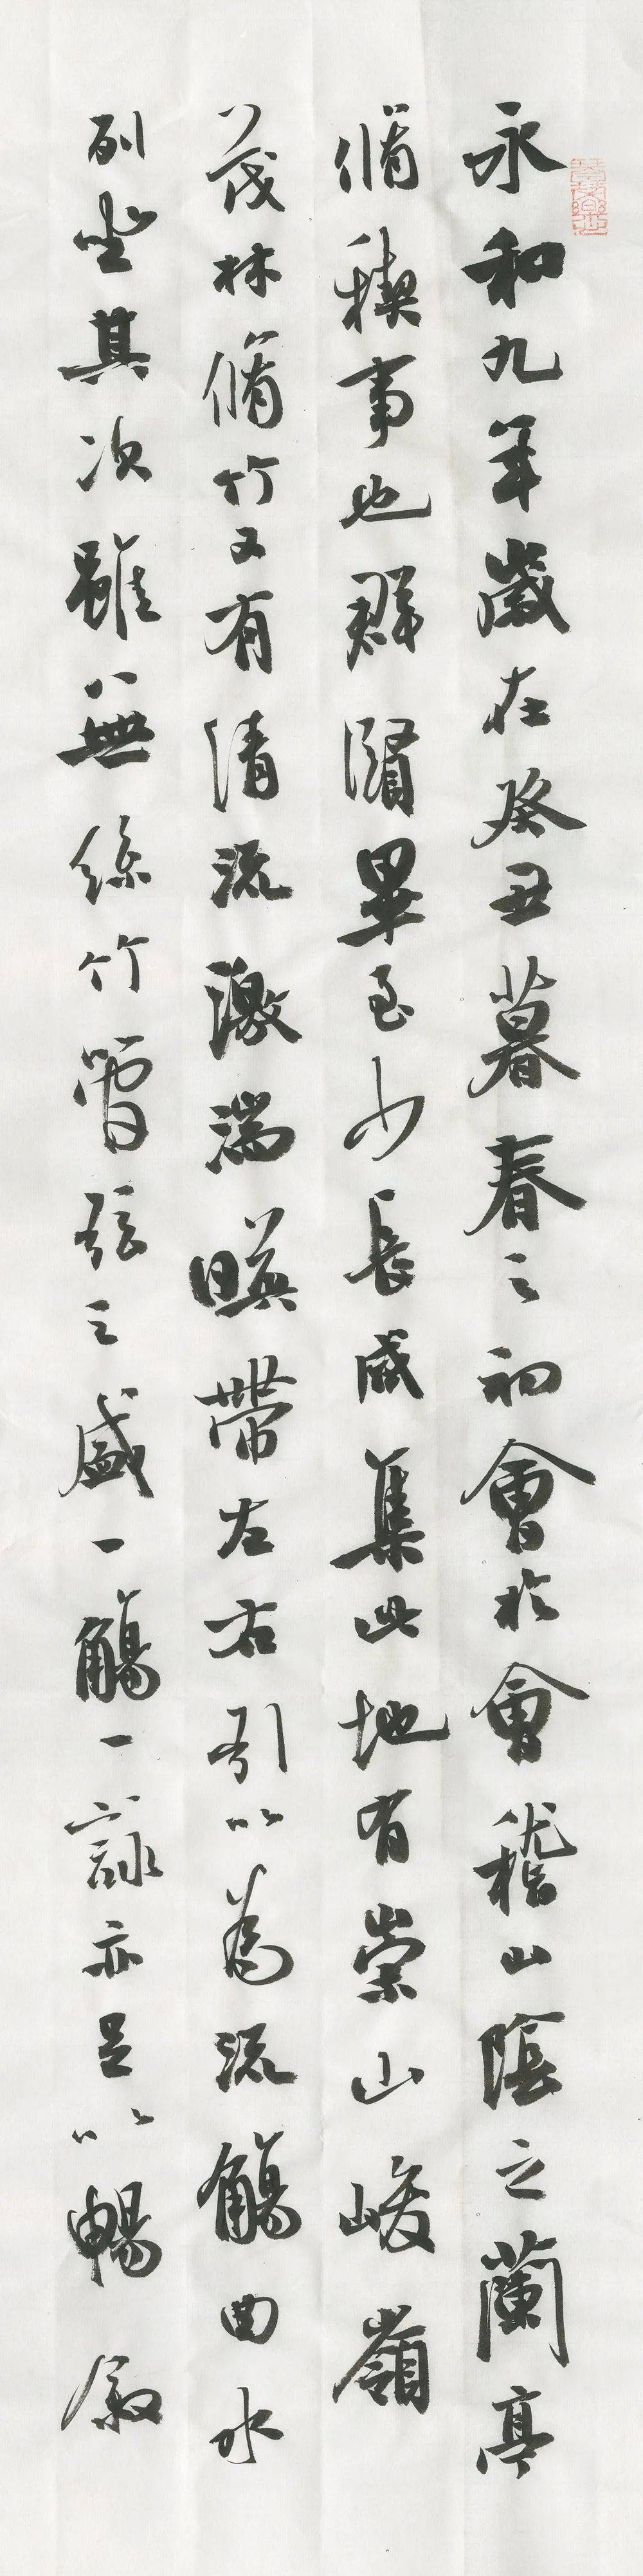 永和九年歲在癸丑暮春之初會於會稽山陰之蘭亭
脩稧事也群賢畢至少長咸集此地有崇山峻嶺
茂林脩竹又有清流激湍暎帶左右引以為流觴曲水
列坐其次雖無絲竹管弦之盛一觴一詠亦足以暢敘